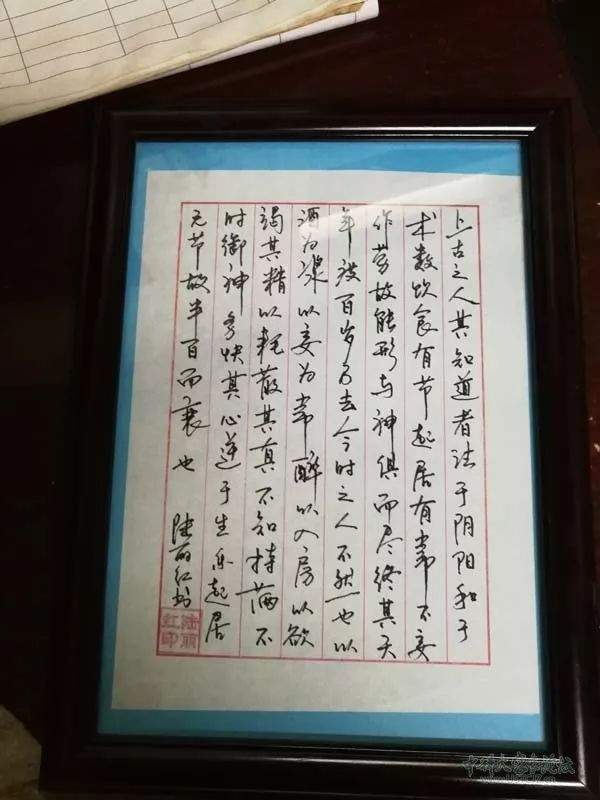 上古之人其知道者法于阴阳和于
术数饮食有节起居有常不妄
作劳故能形与神俱而尽终其天
年度百岁乃去今时之人不然也以
酒为浆以妄为常醉以入房以欲
竭其精以耗散其真不知持满不
时御神务快其心逆于生乐起居
无节故半百而衰也 陆丽红书
陆丽红印